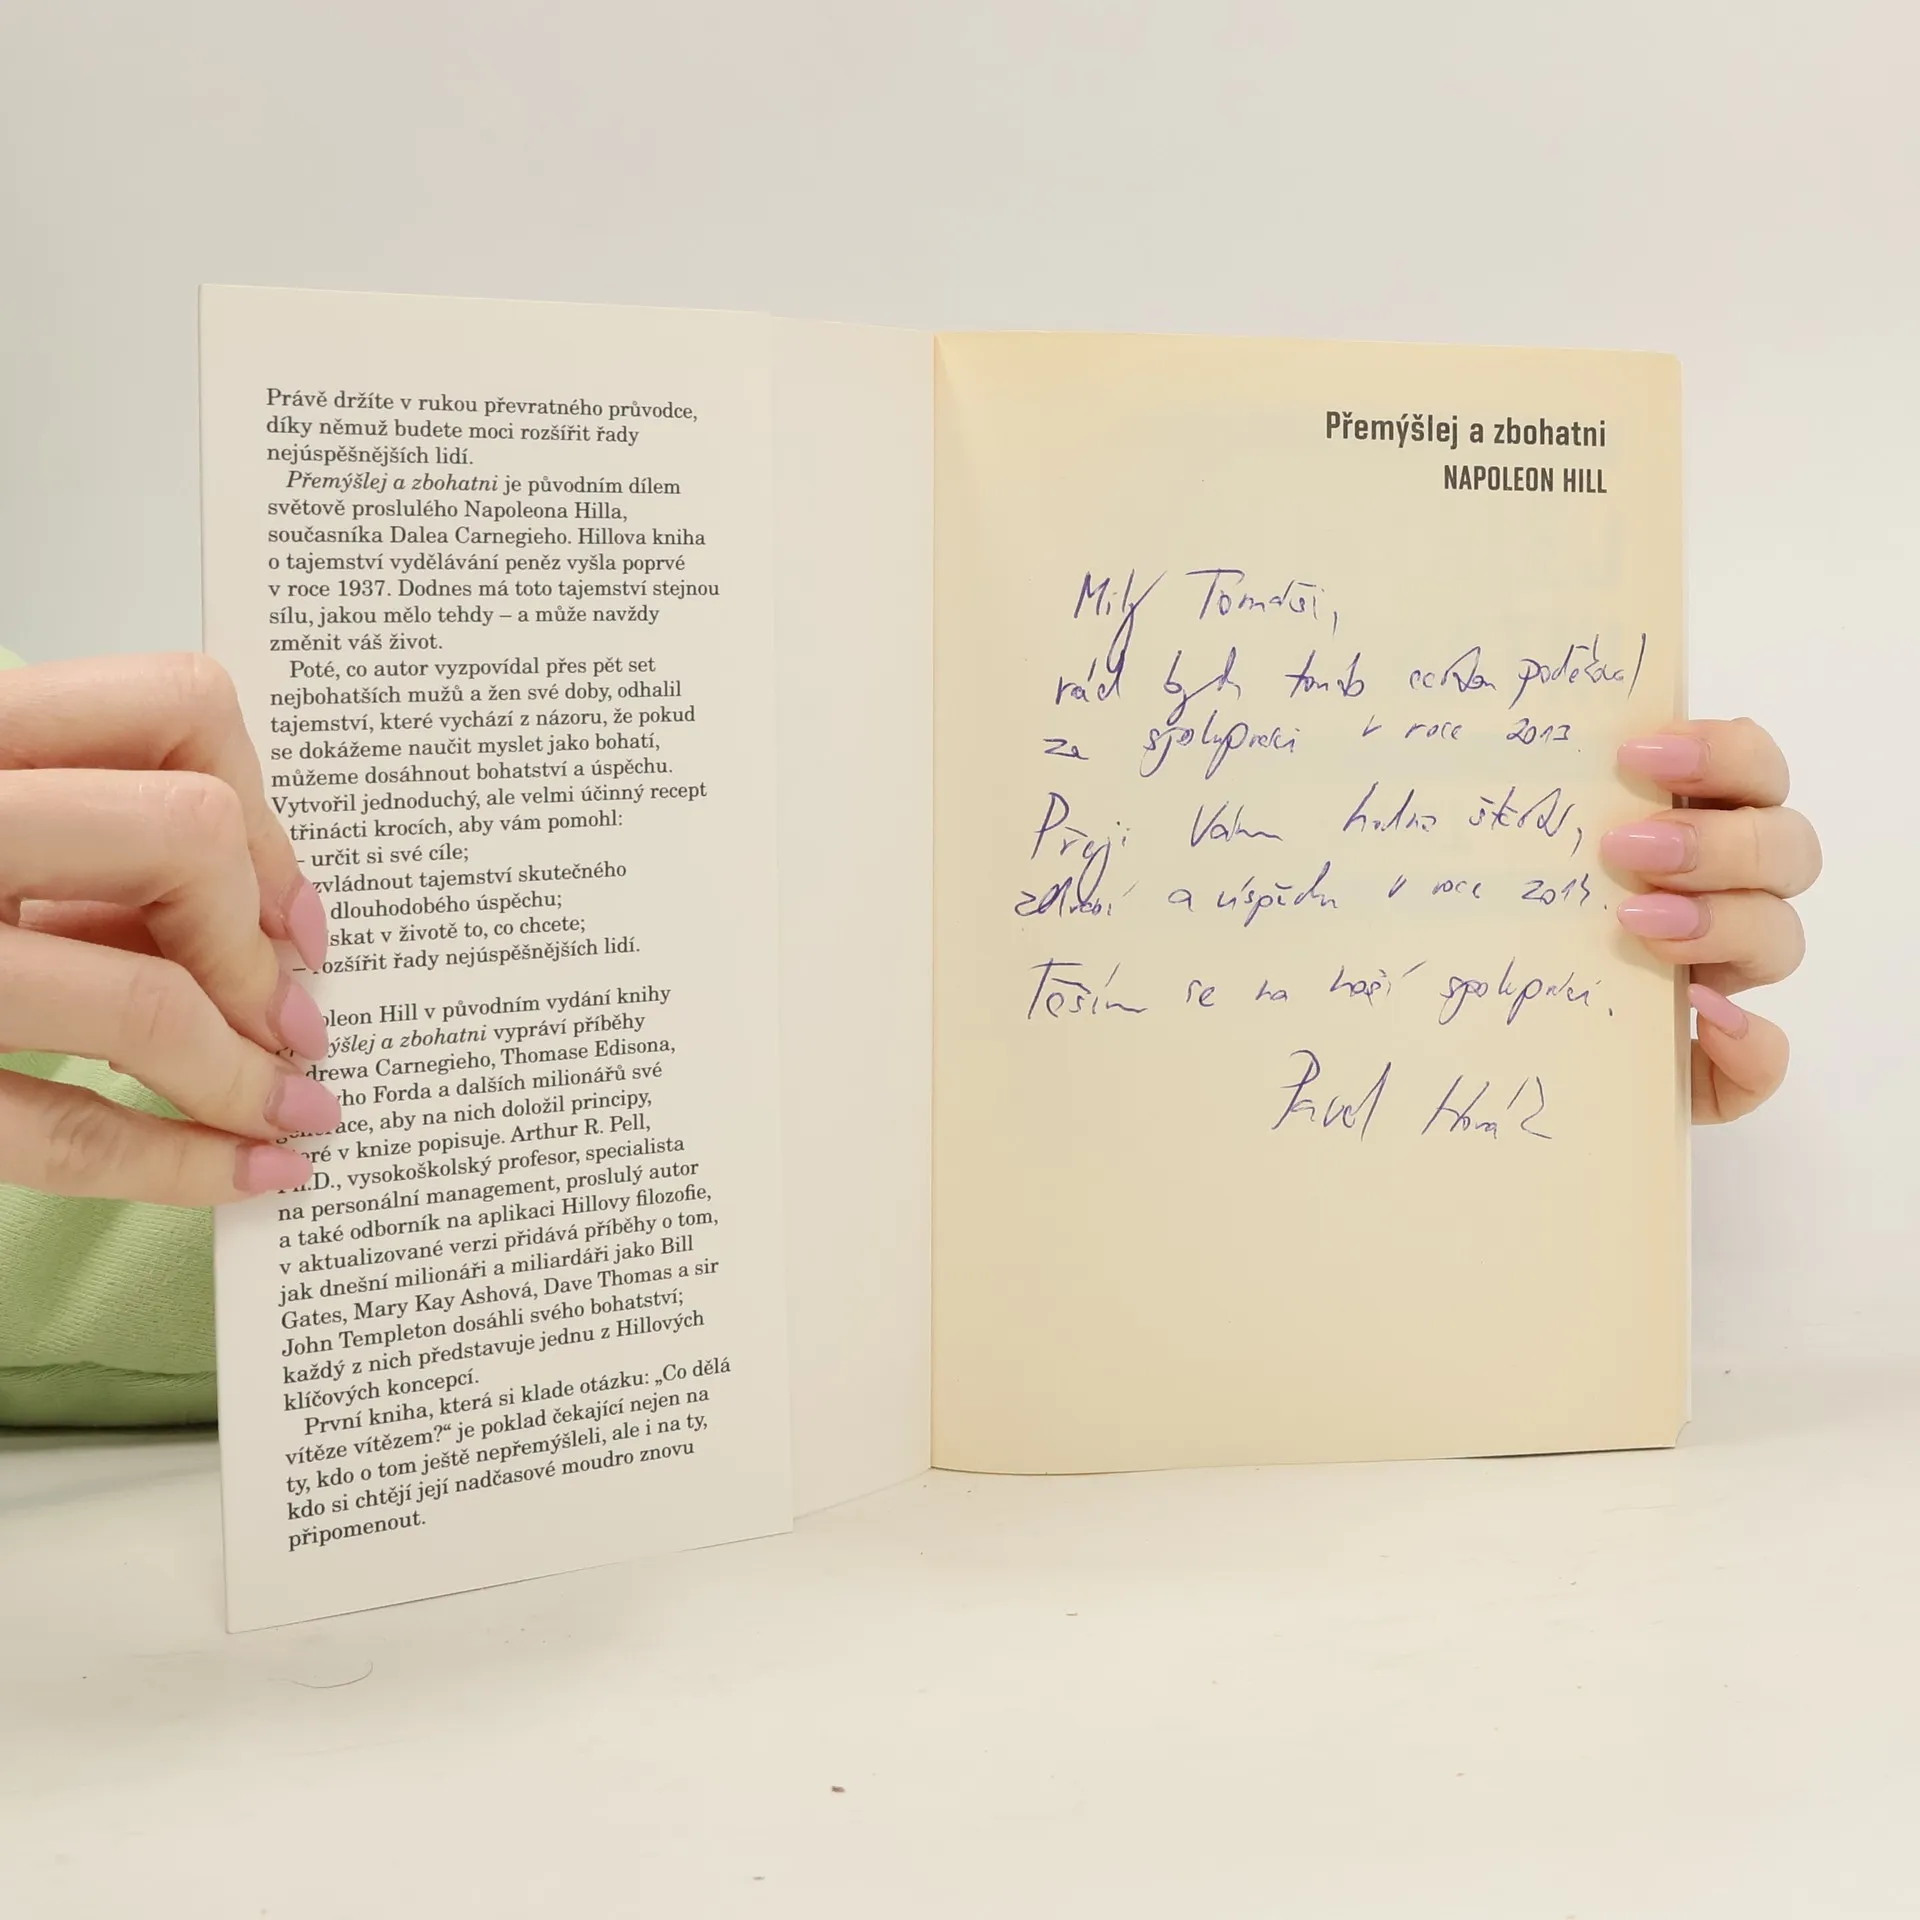 Právě držíte v rukou převratného průvodce,
díky němuž budete moci rozšířit řady
nejúspěšnějších lidí.
Přemýšlej a zbohatni je původním dílem
světově proslulého Napoleona Hilla,
současníka Dalea Carnegieho. Hillova kniha
o tajemství vydělávání peněz vyšla poprvé
v roce 1937. Dodnes má toto tajemství stejnou
sílu, jakou mělo tehdy – a může navždy
změnit váš život.
Poté, co autor vyzpovídal přes pět set
nejbohatších mužů a žen své doby, odhalil
tajemství, které vychází z názoru, že pokud
se dokážeme naučit myslet jako bohatí,
můžeme dosáhnout bohatství a úspěchu.
Vytvořil jednoduchý, ale velmi účinný recept
třinácti krocích, aby vám pomohl:
– určit si své cíle;
zvládnout tajemství skutečného
dlouhodobého úspěchu;
skat v životě to, co chcete;
– rozšířit řady nejúspěšnějších lidí.
oleon Hill v původním vydání knihy
ýšlej a zbohatni vypráví příběhy
drewa Carnegieho, Thomase Edisona,
ho Forda a dalších milionářů své
generace, aby na nich doložil principy,
teré v knize popisuje. Arthur R. Pell,
Ph.D., vysokoškolský profesor, specialista
na personální management, proslulý autor
a také odborník na aplikaci Hillovy filozofie,
v aktualizované verzi přidává příběhy o tom,
jak dnešní milionáři a miliardáři jako Bill
Gates, Mary Kay Ashová, Dave Thomas a sir
John Templeton dosáhli svého bohatství;
každý z nich představuje jednu z Hillových
klíčových koncepcí.
První kniha, která si klade otázku: „Co dělá
vítěze vítězem?“ je poklad čekající nejen na
ty, kdo o tom ještě nepřemýšleli, ale i na ty,
kdo si chtějí její nadčasové moudro znovu
připomenout.
Přemýšlej a zbohatni
NAPOLEON HILL
Milý Tomáši,
rád bych touto cestou poděkoval
za spolupráci v roce 2013.
Přeji Vám hodně štěstí,
zdraví a úspěchu v roce 2014.
Těším se na naší spolupráci.
Pavel